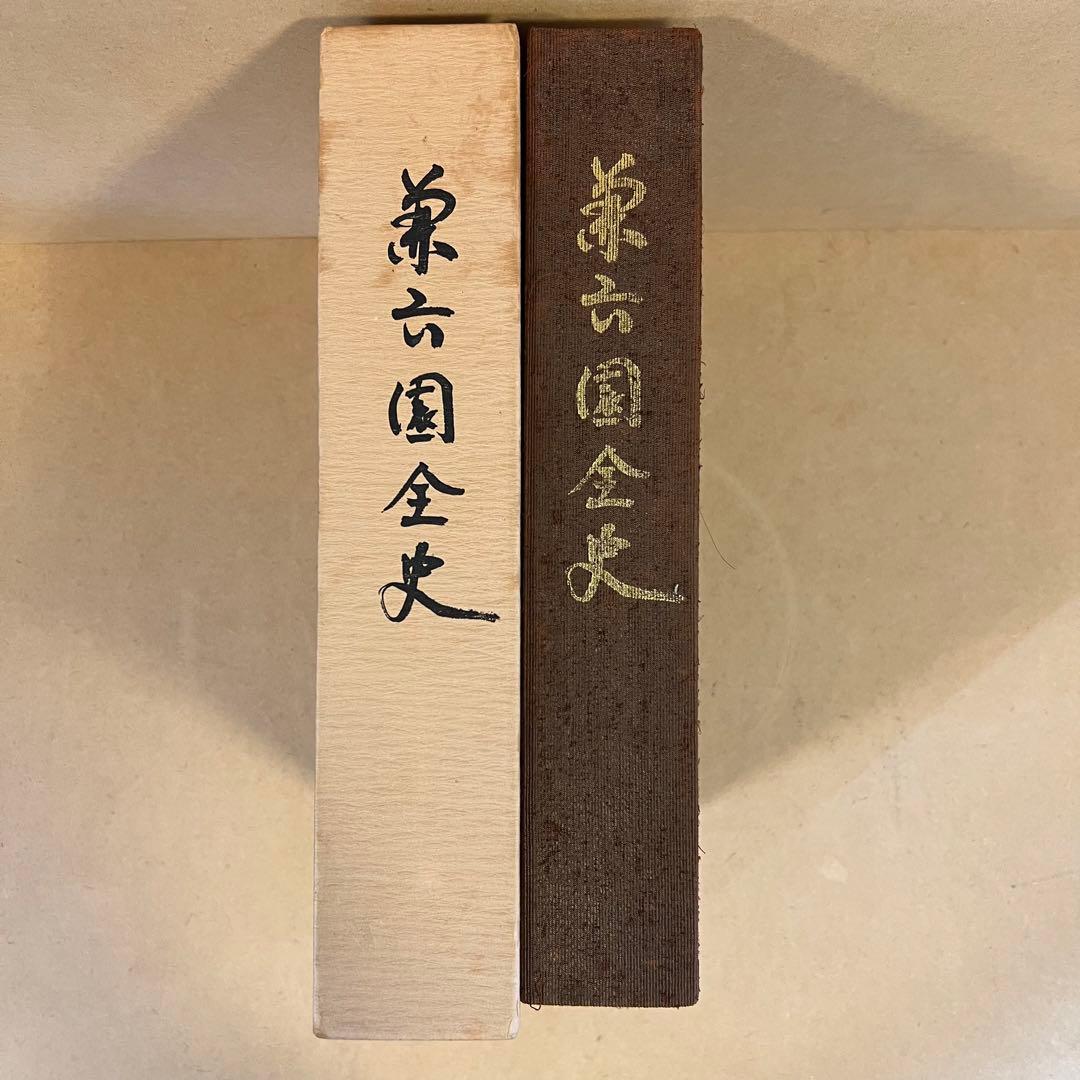 兼六園全史
兼六園全史